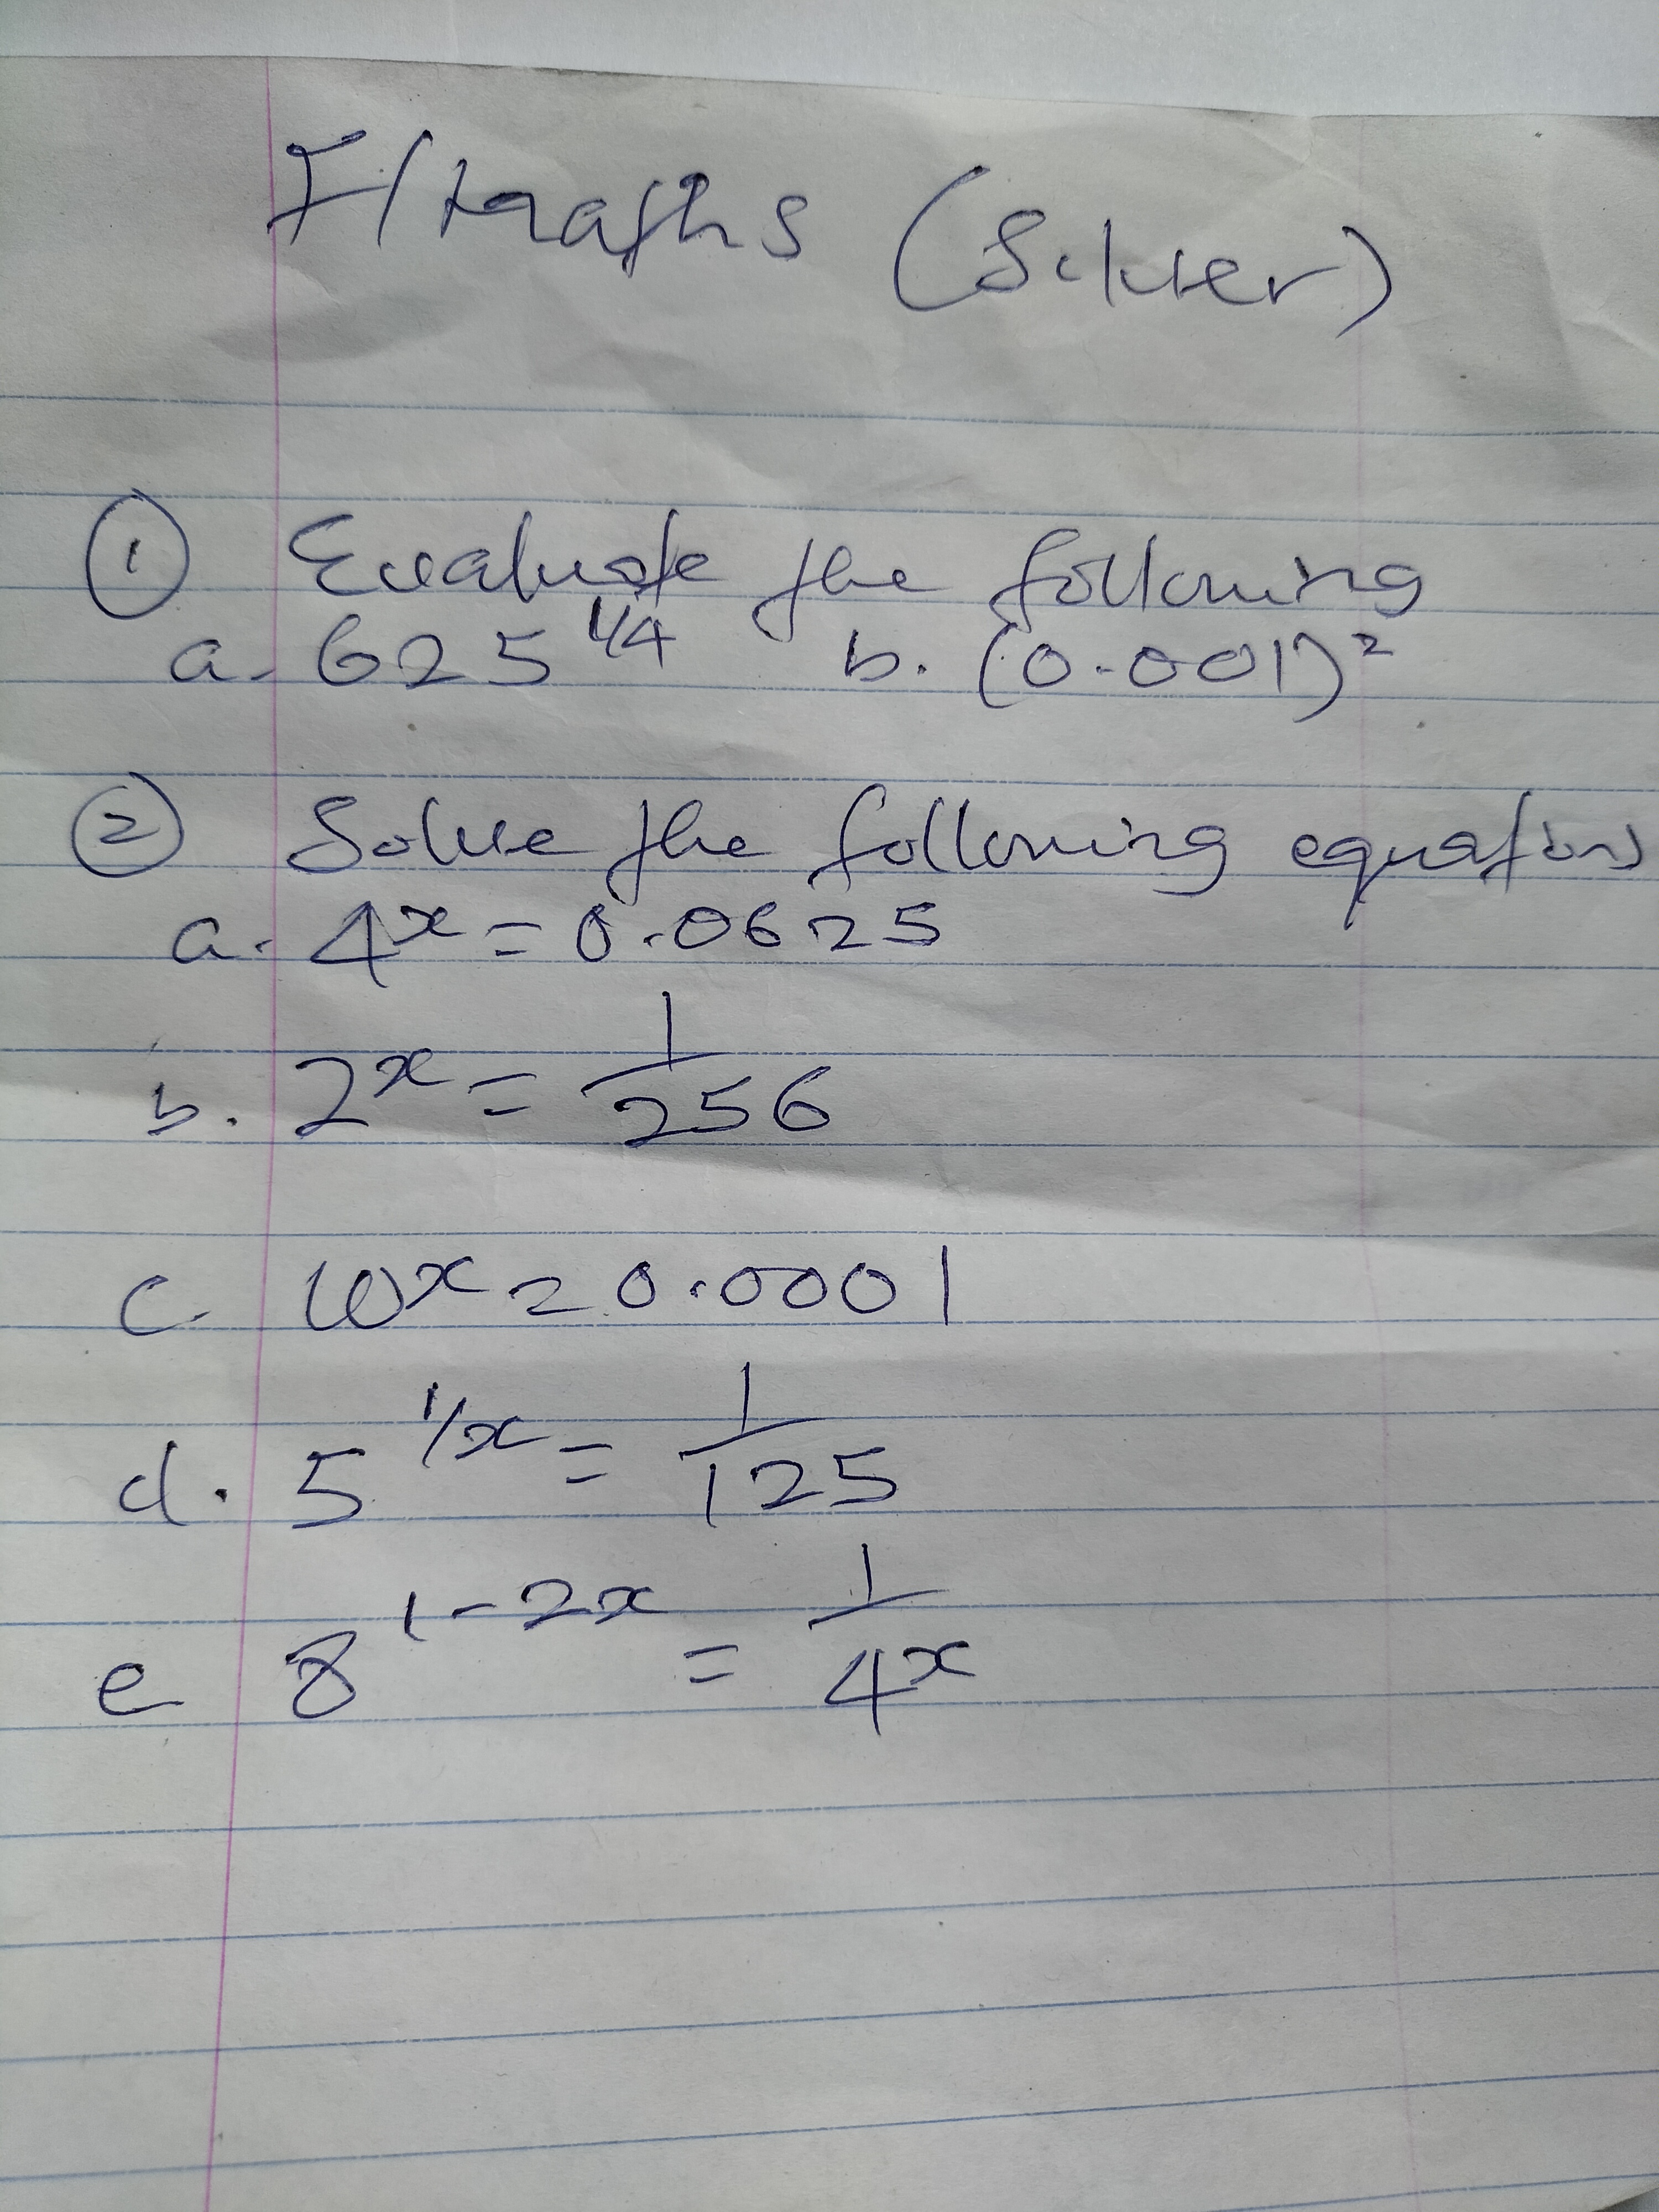 F/Maths (Silver)
① Evaluate the following
a. 625^1/4 b. (0.001)²
② Solve the following equations
a. 4^x = 0.0625
b. 2^x = 1/256
c. 10^x = 0.0001
d. 5^1/x = 1/125
e 8^1-2x = 1/4^x